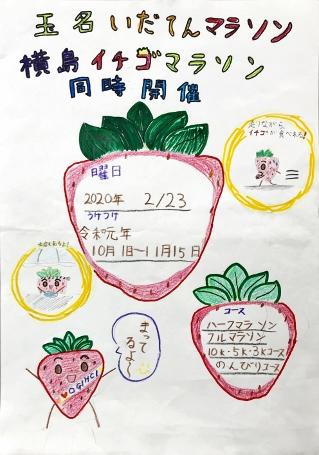 玉名いだてんマラソン
横島イチゴマラソン
同時開催
走りながら
イチゴが食べれる！
曜日
2020年 2/23
うけつけ
令和元年
10月1日〜11月15日
コース
ハーフマラソン
フルマラソン
10k・5k・3kコース
のんびりコース
まって
るよ〜